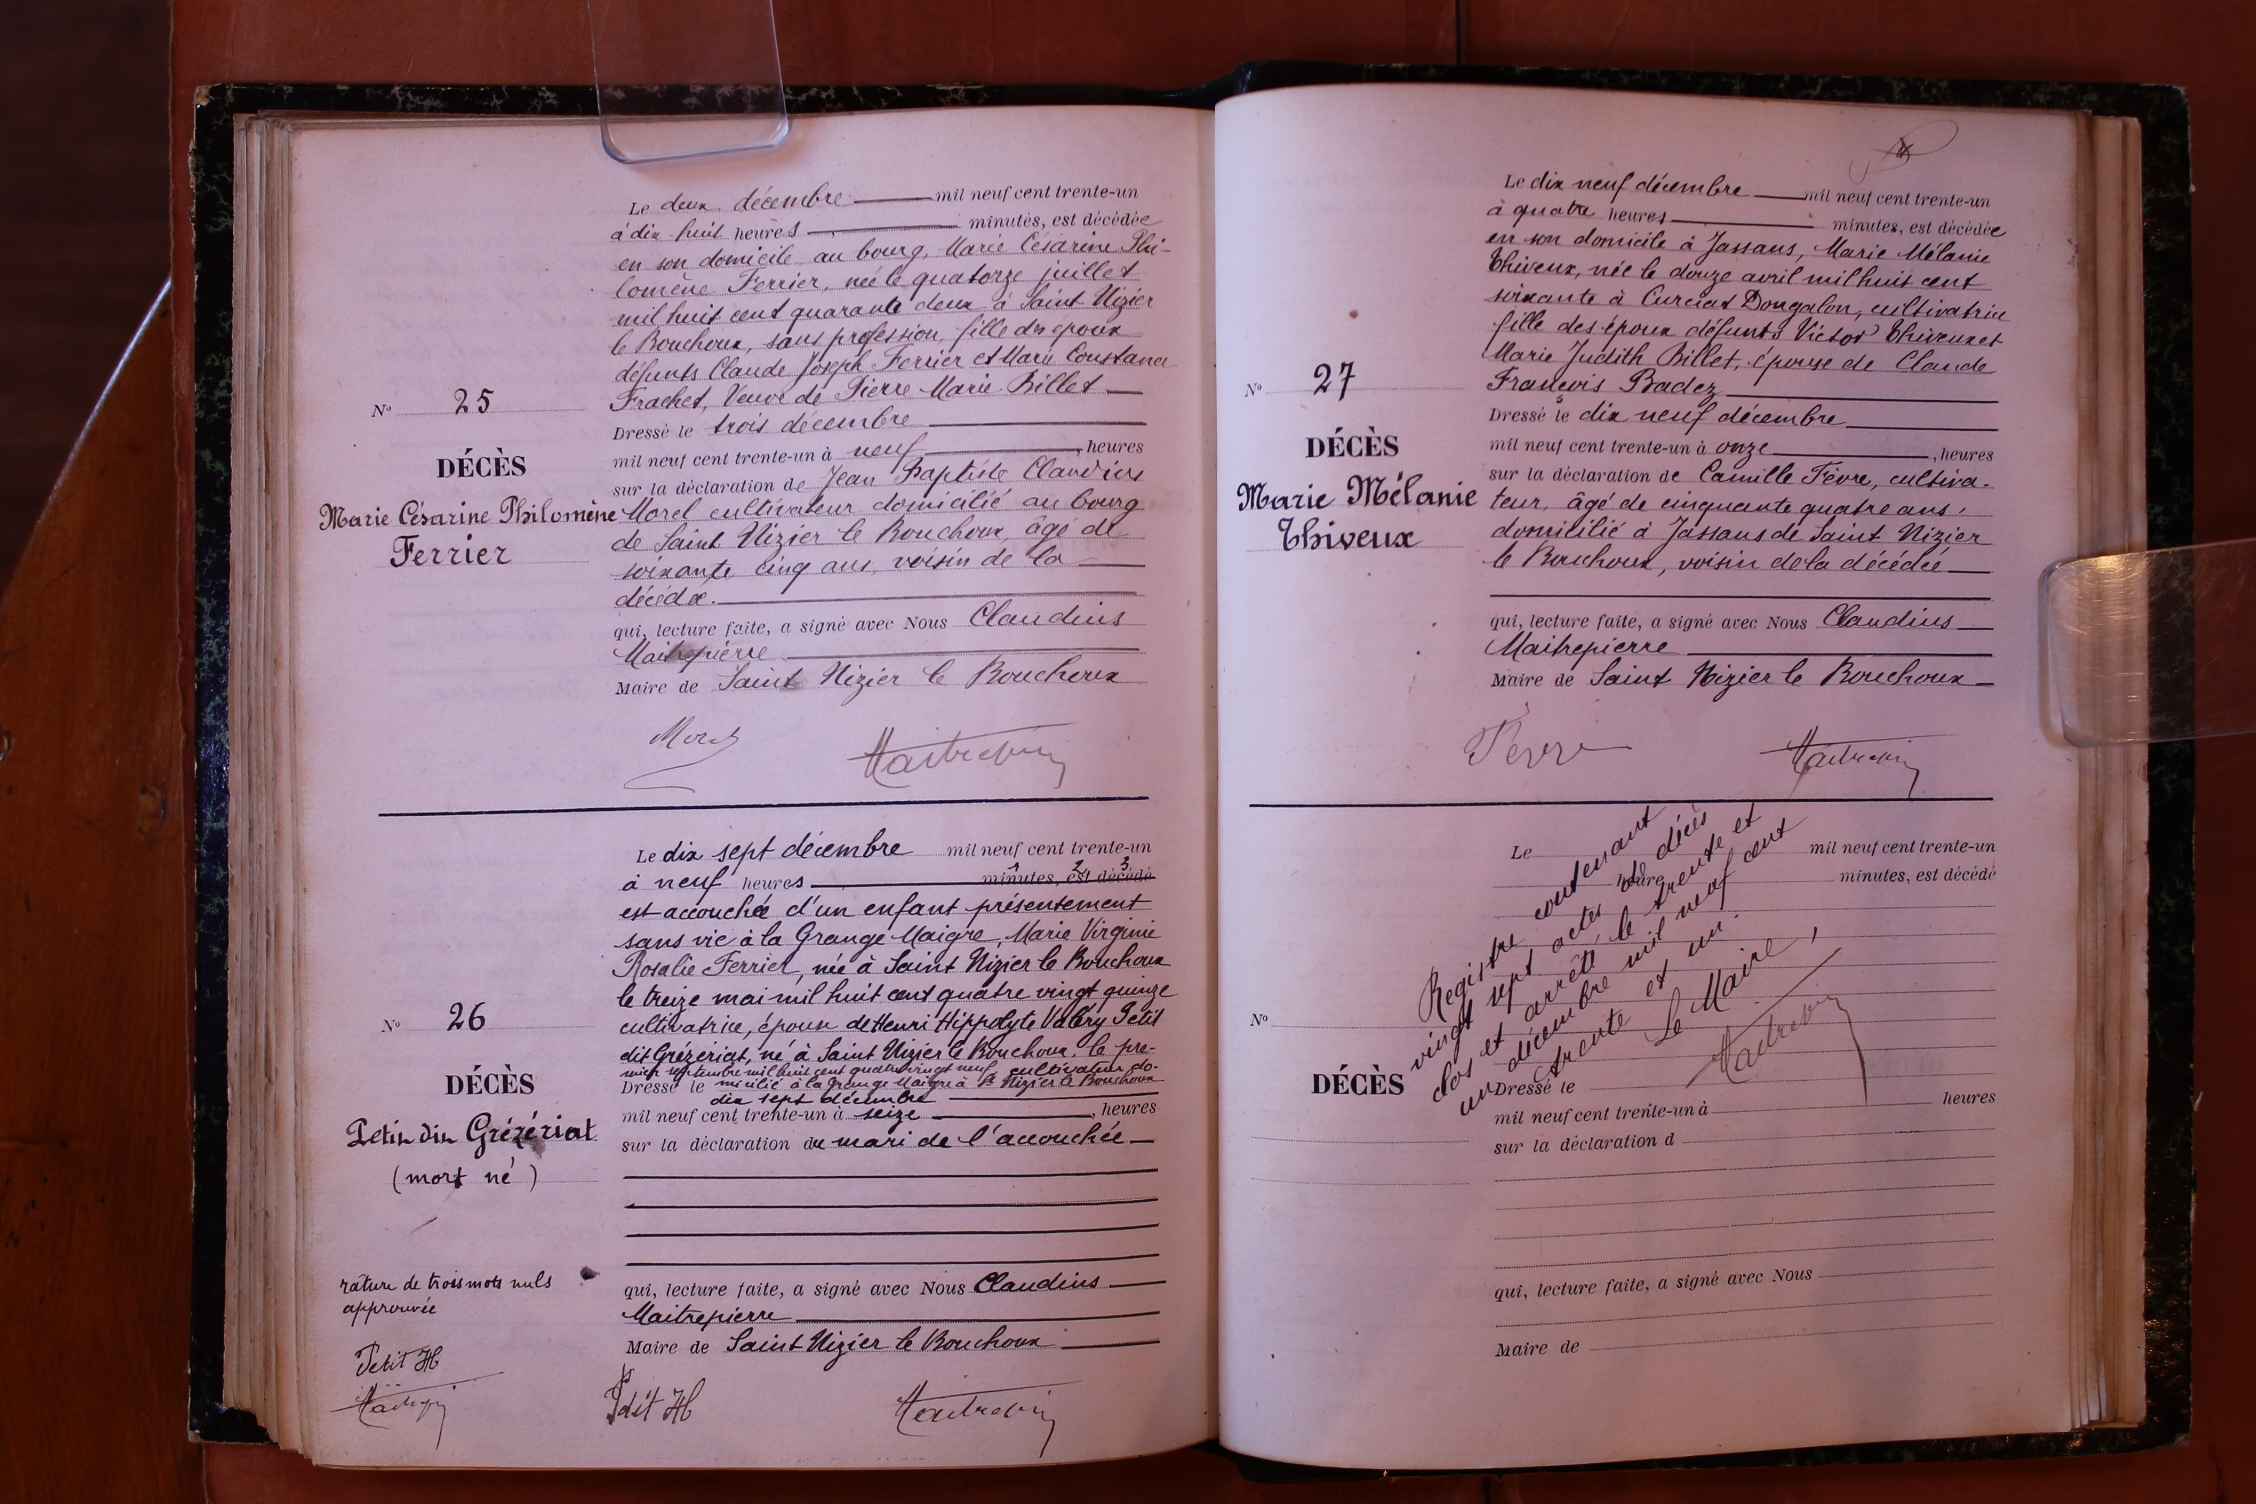 Le deux décembre mil neuf cent trente-un
à dix-huit heures minutes, est décédée
en son domicile au bourg, Marie Césarine Phi-
lomène Ferrier, née le quatorze juillet
mil huit cent quarante deux à Saint Nizier
le Bouchoux, sans profession, fille des époux
défunts Claude Joseph Ferrier et Marie Constance
Frachet, Veuve de Pierre Marie Billet
Dressé le trois décembre
mil neuf cent trente-un à neuf heures
sur la déclaration de Jean Baptiste Claudius
Morel cultivateur domicilié au bourg
de Saint Nizier le Bouchoux, âgé de
soixante cinq ans, voisin de la
décédée.
qui, lecture faite, a signé avec Nous Claudius
Maitrepierre
Maire de Saint Nizier le Bouchoux
No 25
DÉCÈS
Marie Césarine Philomène
Ferrier
Morel Maitrepierre
Le dix sept décembre mil neuf cent trente-un
à neuf heures minutes, est décédé
1 2 3
est accouchée d'un enfant présentement
sans vie à la Grange Maigre, Marie Virginie
Rosalie Ferrier, née à Saint Nizier le Bouchoux
le treize mai mil huit cent quatre vingt quinze
cultivatrice, épouse de Henri Hippolyte Valéry Petit
dit Grézériat, né à Saint Nizier le Bouchoux, le pre-
mier septembre mil huit cent quatre vingt neuf, cultivateur do-
Dressé le micilié à la Grange Maigre à St Nizier le Bouchoux
dix sept décembre
mil neuf cent trente-un à seize heures
sur la déclaration du mari de l'accouchée
qui, lecture faite, a signé avec Nous Claudius
Maitrepierre
Maire de Saint Nizier le Bouchoux
No 26
DÉCÈS
Petit dit Grézériat
(mort né)
rature de trois mots nuls
approuvée
Petit H
Maitrepierre
Petit H Maitrepierre
Le dix neuf décembre mil neuf cent trente-un
à quatre heures minutes, est décédée
en son domicile à Jassans, Marie Mélanie
Thiveux, née le douze avril mil huit cent
soixante à Curciat Dongalon, cultivatrice
fille des époux défunts Victor Thiveux et
Marie Judith Billet, épouse de Claude
François Badez
Dressé le dix neuf décembre
mil neuf cent trente-un à onze heures
sur la déclaration de Camille Fèvre, cultiva-
teur, âgé de cinquante quatre ans,
domicilié à Jassans de Saint Nizier
le Bouchoux, voisin de la décédée
qui, lecture faite, a signé avec Nous Claudius
Maitrepierre
Maire de Saint Nizier le Bouchoux
No 27
DÉCÈS
Marie Mélanie
Thiveux
Fèvre Maitrepierre
Le mil neuf cent trente-un
heure minutes, est décédé
No
DÉCÈS
Registre contenant
vingt sept actes de décès
clos et arrêté le trente et
un décembre mil neuf cent
trente et un.
Le Maire,
Maitrepierre
Dressé le
mil neuf cent trente-un à heures
sur la déclaration d
qui, lecture faite, a signé avec Nous
Maire de